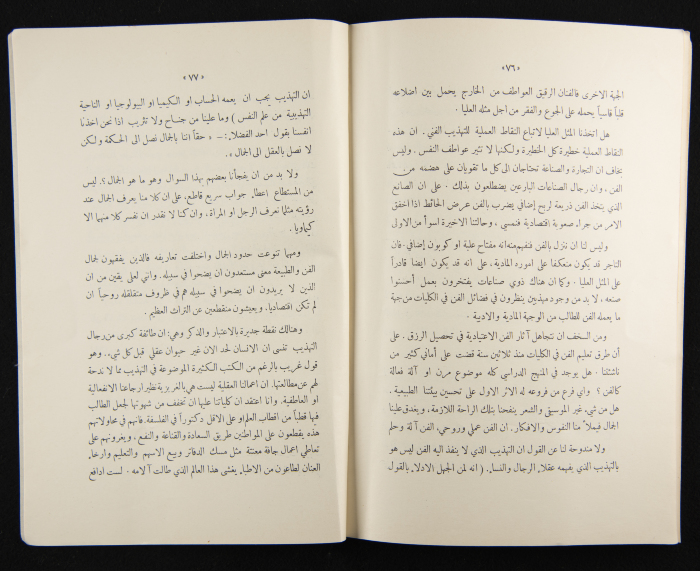 «٧٦»
الجهة الاخرى فالفنان الرقيق العواطف من الخارج يحمل بين اضلاعه
قلباً قاسياً يحمله على الجوع والفقر من اجل مثله العليا .
هل اتخذنا المثل العليا لاتباع النقاط العملية للتهذيب الفني . ان هذه
النقاط العملية خطيرة كل الخطيرة ولكنها لا تثير عواطف النفس . وليس
بخاف ان التجارة والصناعة تحتاجان الى كل ما تقويان على هضمه من
الفن ، وان رجال الصناعات البارعين يضطلعون بذلك . على ان الصانع
الذي يتخذ الفن ذريعة لربح إضافي يضرب بالفن عرض الحائط اذا اخفق
الامر من جراء صعوبة اقتصادية فنمسي ، وحالتنا الاخيرة اسوأ من الاولى
وليس لنا ان ننزل بالفن فنفهم منه انه مفتاح علبة او كوبون إضافي . فان
التاجر قد يكون منعكفاً على اموره المادية ، على انه قد يكون ايضا قادراً
على المثل العليا . وكما ان هناك ذوي صناعات يفتخرون بعمل أحسنوا
صنعه ، لا بد من وجود مهذبين ينظرون في فضائل الفن في الكليات من جهة
ما يعمله الفن للطالب من الوجهة المادية والادبية .
ومن السخف ان نتجاهل آثار الفن الاعتيادية في تحصيل الرزق . على
أن طرق تعليم الفن في الكليات منذ ثلاثين سنة قضت على أماني كثير من
ناشئتنا . هل يوجد في المنهج الدراسي كله موضوع مرن او آلة فعالة
كالفن ؟ واي فرع من فروعه له الاثر الاول على تحسين بيئتنا الطبيعية .
هل من شيء غير الموسيقى والشعر ينفحنا بتلك الراحة اللازمة ، ويغدق علينا
الجمال فيملأ منا النفوس والافكار . ان الفن عملي وروحي ، الفن آلة وحلم
ولا مندوحة لنا عن القول ان التهذيب الذي لا ينفذ اليه الفن ليس هو
بالتهذيب الذي يفهمه عقلاء الرجال والنساء . ( انه لمن الجهل الادلاء بالقول
«٧٧»
ان التهذيب يجب ان يعمه الحساب او الكيميا او البيولوجيا او الناحية
التهذيبية من علم النفس ) وما علينا من جناح ولا تثريب اذا نحن اخذنا
انفسنا بقول احد الفضلاء : – « حقاً اننا بالجمال نصل الى الحكمة ولكن
لا نصل بالعقل الى الجمال » .
ولا بد من ان يفجأنا بعضهم بهذا السوال وهو ما هو الجمال ؟ ليس
من المستطاع اعطاء جواب سريع قاطع ، على ان كلا منا يعرف الجمال عند
رؤيته مثلما نعرف الرجل او المرأة ، وان كنا لا نقدر ان نفسر كلا منهما الا
كيماويا .
ومهما تنوعت حدود الجمال واختلفت تعاريفه فالذين يفقهون لجمال
الفن والطبيعة معنى مستعدون ان يضحوا في سبيله . واني لعلى يقين من ان
الذين لا يريدون ان يضحوا في سبيله هم في ظروف متقلقله روحياً ان
لم تكن اقتصاديا ، ويعيشون منقطعين عن التراث العظيم .
وهنالك نقطة جديرة بالاعتبار والذكر وهي : ان طائفة كبرى من رجال
التهذيب تنسى ان الانسان لحد الان غير حيوان عقلي قبل كل شيء . وهو
قول غريب بالرغم من الكتب الكثيرة الموضوعة في التهذيب مما لا ندحة
لهم عن مطالعتها . ان اعمالنا العقلية ليست هي بالغريزية نظير ارجاعنا الانفعالية
او العاطفية . وانا اعتقد ان كلياتنا عليها ان تخفف من شهوتها لجعل الطالب
فيها قطباً من اقطاب العلم او على الاقل دكتوراً في الفلسفة . فانهم في محاولاتهم
هذه يقطعون على المواطنين طريق السعادة والقناعة والنفع ، ويغرونهم على
تعاطي اعمال جافة معنتة مثل مسك الدفاتر وبيع الاسهم والتعليم وارخاء
العنان لطاعون من الاطباء يغشى هذا العالم الذي طالت آلامه . لست ادافع